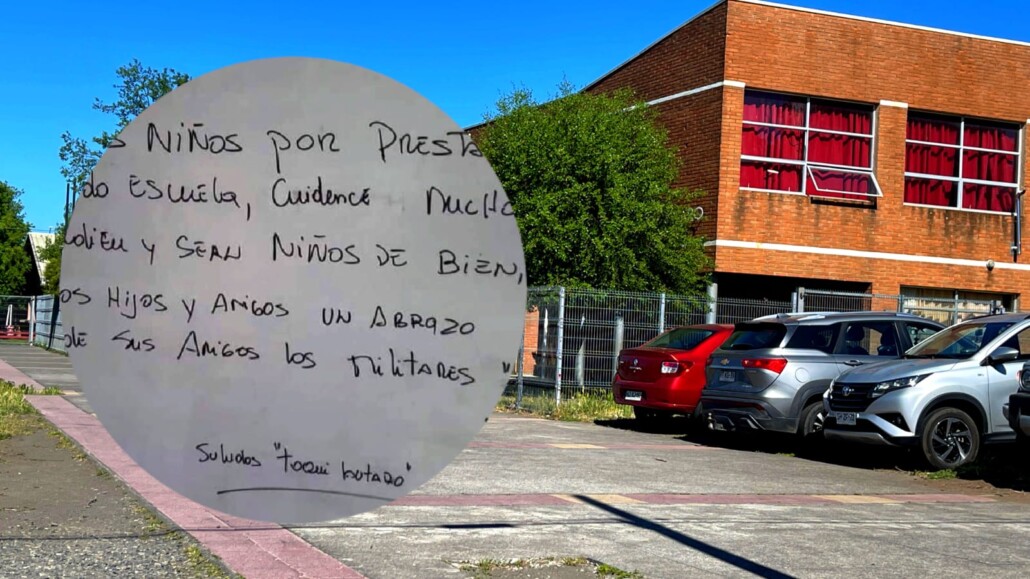 NIÑOS POR PREST
ESCUELA, CUIDENCE MUCHO
Y SEAN NIÑOS DE BIEN,
HIJOS Y AMIGOS UN ABRAZO
DE SUS AMIGOS LOS MILITARES"
SALUDOS "TOQUI BUTADO"